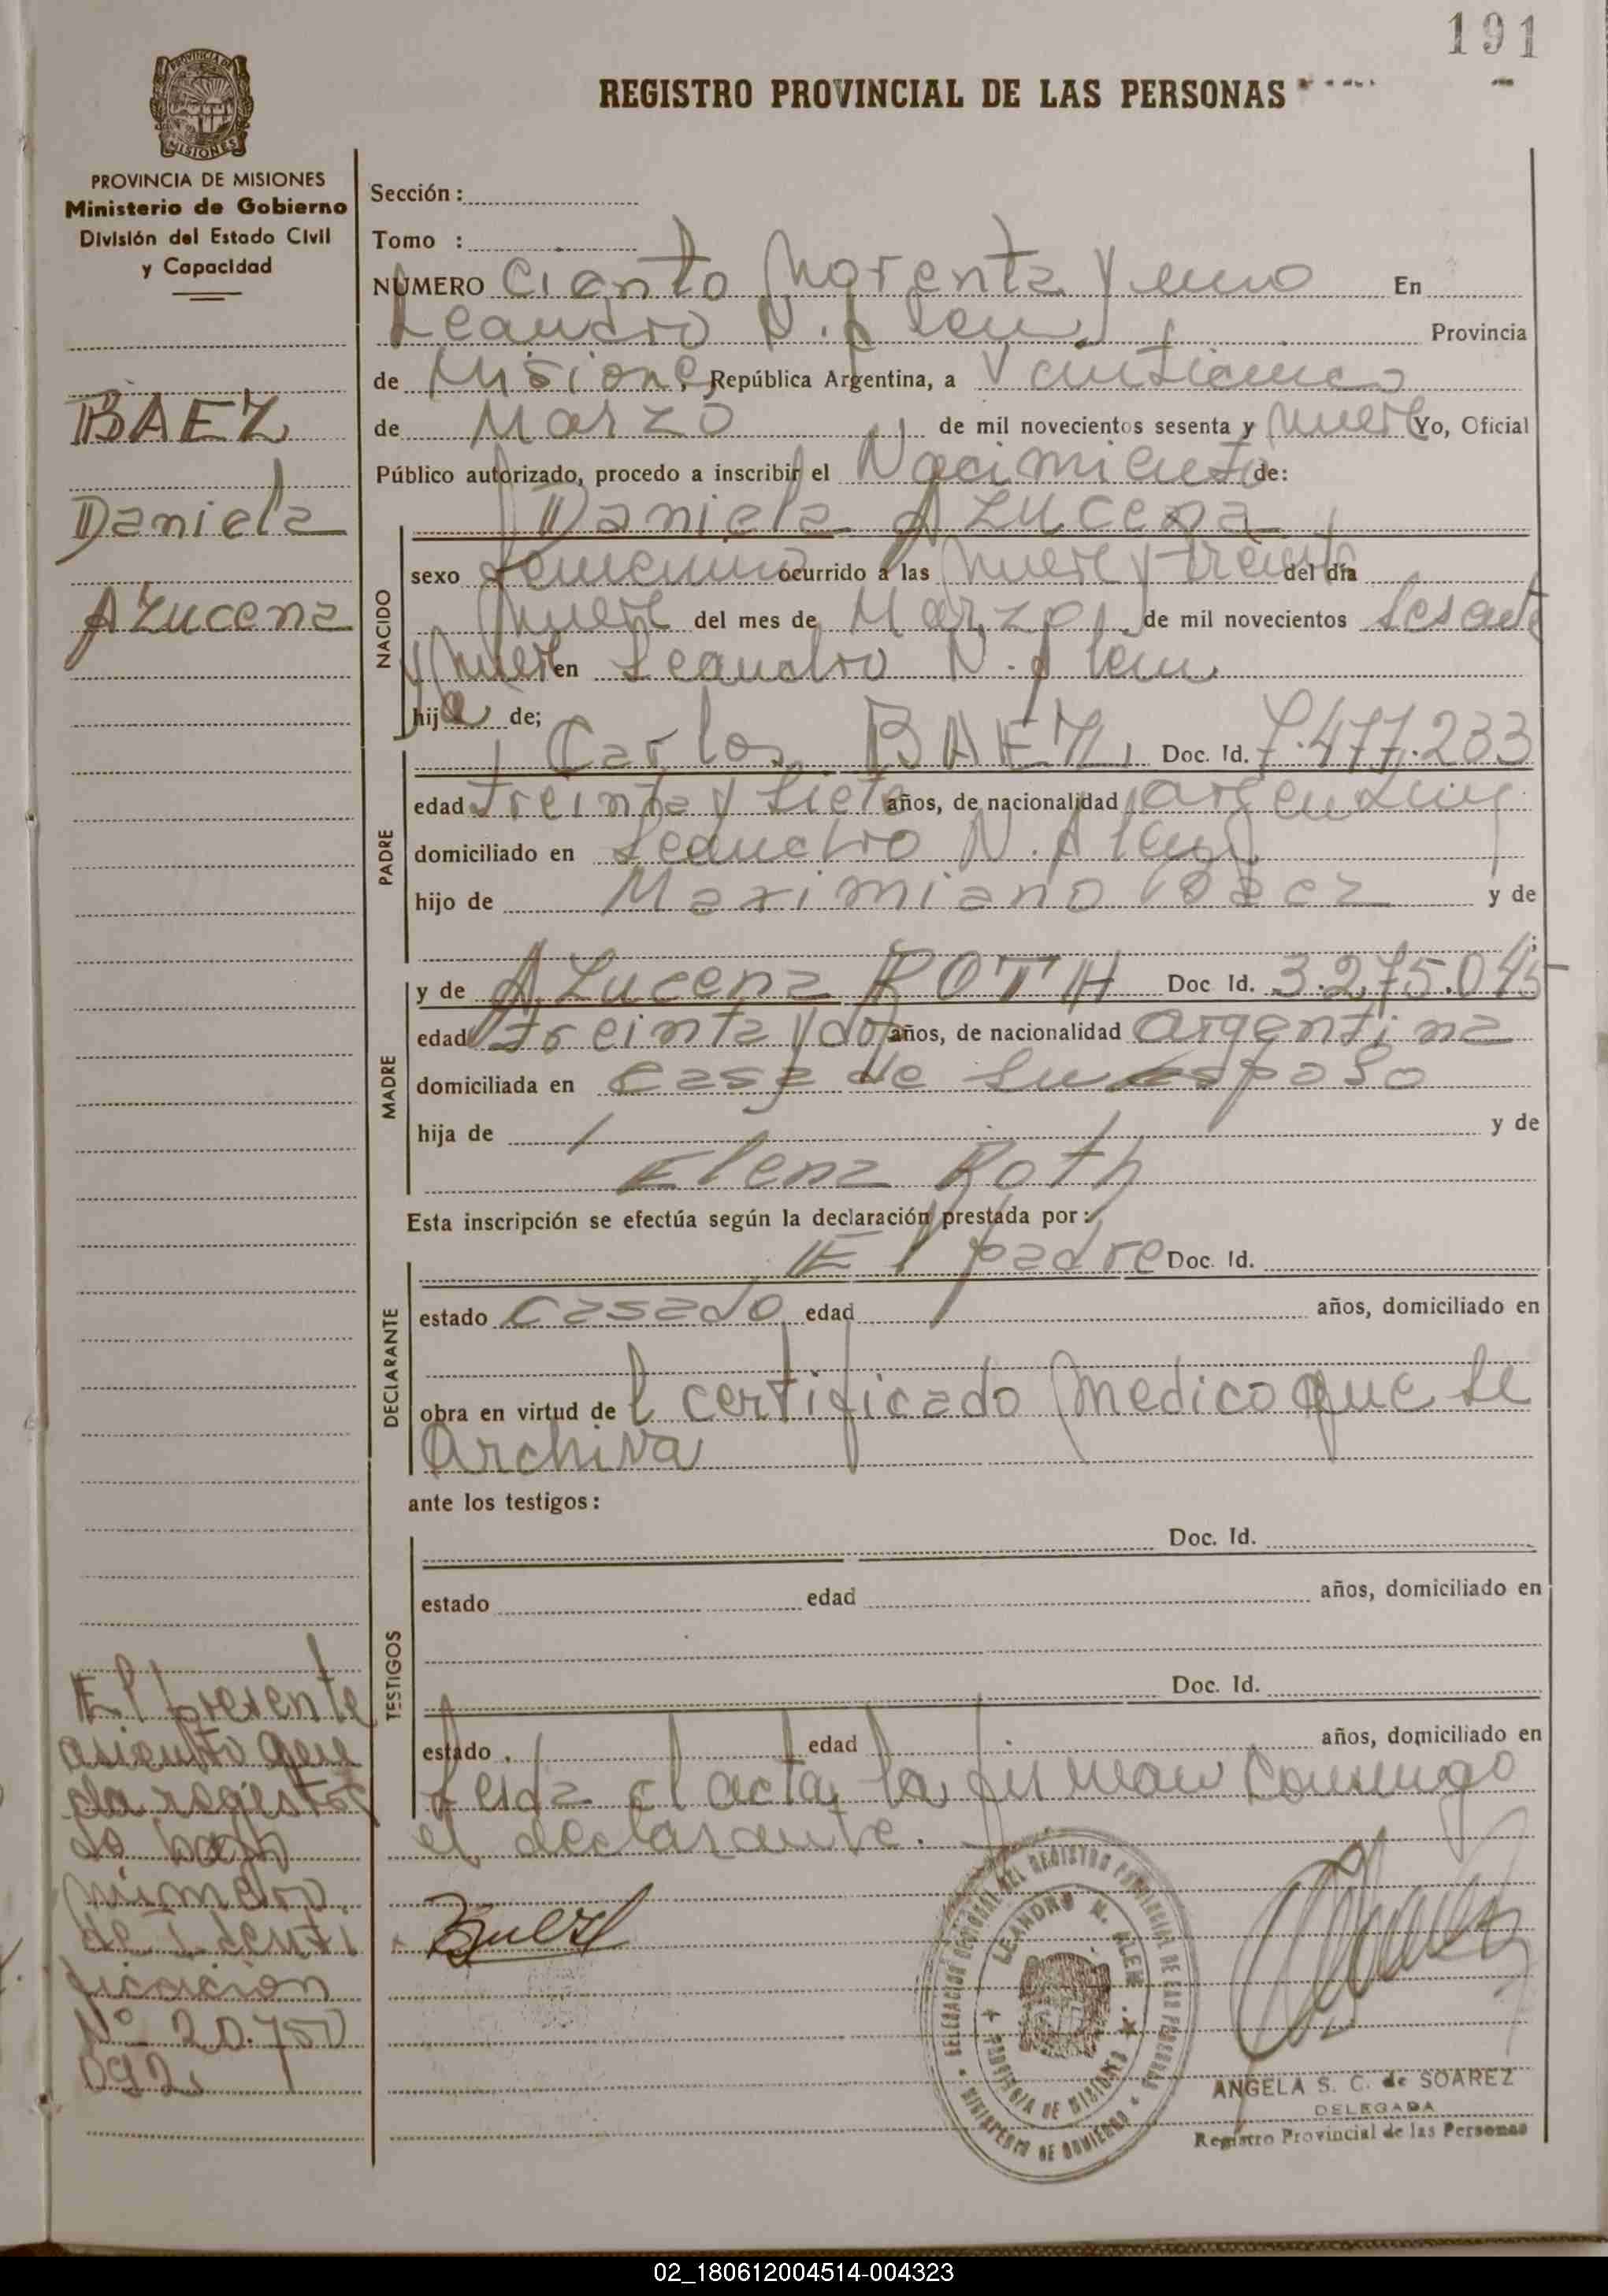 191
REGISTRO PROVINCIAL DE LAS PERSONAS
PROVINCIA DE MISIONES
Ministerio de Gobierno
División del Estado Civil
y Capacidad
BAEZ
Daniela
Azucena
Sección :
Tomo :
NUMERO Ciento Norenta y uno En
Leandro N. Alem, Provincia
de Misiones, República Argentina, a Veinticinco
de Marzo de mil novecientos sesenta y nueve Yo, Oficial
Público autorizado, procedo a inscribir el Nacimiento de:
Daniela Azucena
NACIDO
sexo femenino ocurrido a las nueve y treinta del día
nueve del mes de Marzo de mil novecientos sesenta
y nueve en Leandro N. Alem
hija de;
PADRE
Carlos BAEZ, Doc. Id. 7.477.233
edad treinta y siete años, de nacionalidad argentina
domiciliado en Leandro N. Alem
hijo de Maximiano Baez y de
MADRE
y de Azucena ROTH Doc Id. 3.275.045
edad treinta y dos años, de nacionalidad argentina
domiciliada en casa de su esposo
hija de y de
Elena Roth
Esta inscripción se efectúa según la declaración prestada por:
DECLARANTE
El padre Doc. Id.
estado casado edad años, domiciliado en
obra en virtud del certificado medico que se
archiva
ante los testigos:
TESTIGOS
Doc. Id.
estado edad años, domiciliado en
Doc. Id.
estado edad años, domiciliado en
Leida el acta, la firman conmigo
el declarante.
El presente
asiento que
da registra
do bajo
número
de identi
ficación
Nº 20.750
092
Baez
DELEGACION REGIONAL DEL REGISTRO PROVINCIAL DE LAS PERSONAS
LEANDRO N. ALEM
PROVINCIA DE MISIONES
MINISTERIO DE GOBIERNO
ANGELA S. C. de SOAREZ
DELEGADA
Registro Provincial de las Personas
02_180612004514-004323